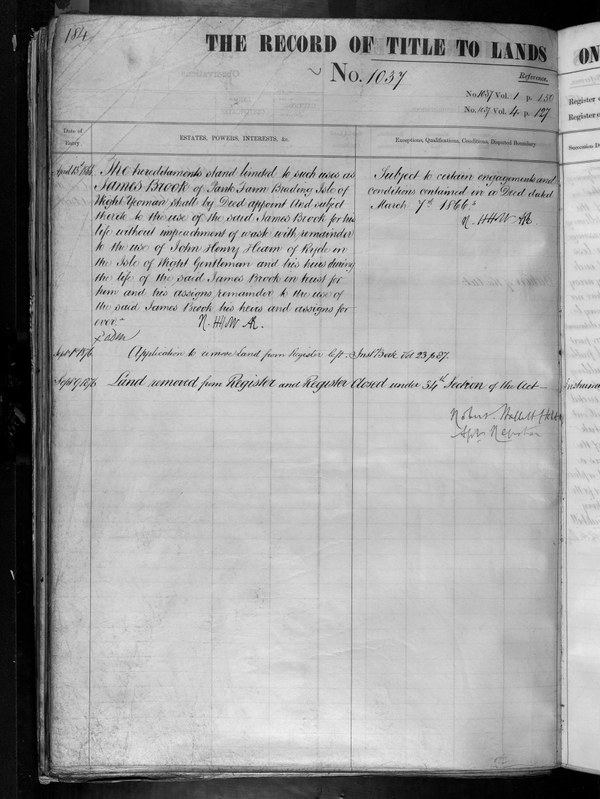 184
THE RECORD OF TITLE TO LANDS
ON
No. 1037
Reference.
No. 1037 Vol. 1 p. 150
No. 1037 Vol. 4 p. 127
Register
Register
Date of
Entry.
ESTATES, POWERS, INTERESTS, &c.
Exceptions, Qualifications, Conditions, Disputed Boundary
Succession D
April 13th 1866
The hereditaments stand limited to such uses as
James Brook of Tank Farm Brading Isle of
Wight Yeoman shall by Deed appoint And subject
thereto to the use of the said James Brook for his
life without impeachment of waste with remainder
to the use of John Henry Hearn of Ryde in
the Isle of Wight Gentleman and his heirs during
the life of the said James Brook in trust for
him and his assigns remainder to the use of
the said James Brook his heirs and assigns for
ever.
R. HHW AR.
Subject to certain engagements and
conditions contained in a Deed dated
March 7th 1866.
R. HHW AR
Sept 1st 1876
Application to remove Land from Register left. Inst Book Vol 23 p 87.
Sept 9 1876
Land removed from Register and Register Closed under 34th Section of the Act
Robert Hallett
Asst Registrar